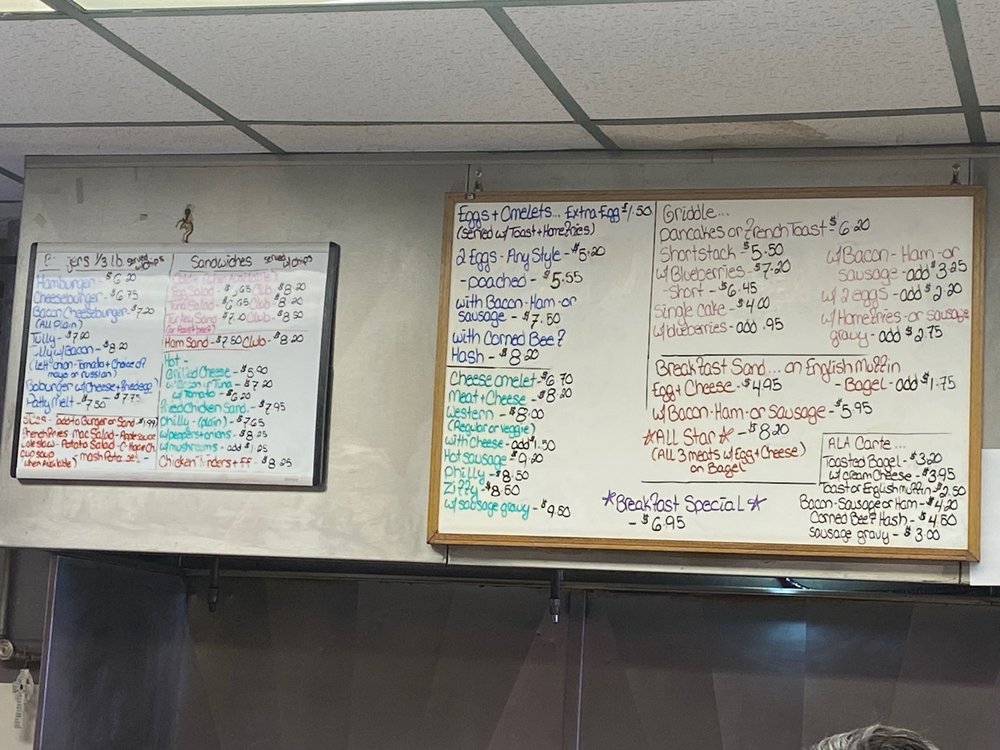 gers 1/3 lb. served w/chips
Hamburger - $6.20
Cheeseburger - $6.75
Bacon Cheeseburger - $7.20
(All Plain)
Tully - $7.20
Tully w/Bacon - $8.20
(Lett-Onion-Tomato + Choice of
mayo or russian)
Boburger w/Cheese + Fried egg
- $7.75
Patty Melt - $7.50
Sides - Add to Burger or Sand $1.99
French Fries Mac Salad - Applesauce
Coleslaw - Potato Salad
cup soup - mash Potatoes
when Available
Sandwiches served w/chips
Egg Salad - Club - $8.20
Tuna Salad - Club - $8.20
Turkey Sand - Club - $8.50
(or Roast beef)
Ham Sand - $7.50 Club - $8.20
Hot -
Grilled Cheese -
w/Bacon or Tuna - $7.20
w/Tomato - $6.20
Fried Chicken Sand. - $7.95
Philly - (plain) - $7.65
w/peppers + onions - $8.25
w/mushrooms - add $1.25
Chicken Tinders + FF - $8.25
Eggs + Omelets... Extra Egg $1.50
(served w/Toast + Homefries)
2 Eggs - Any Style - $5.20
- poached - $5.55
with Bacon - Ham - or
sausage - $7.50
with Corned Beef
Hash - $8.20
Cheese omelet - $6.70
Meat + Cheese - $8.20
Western - $8.00
(Regular or veggie)
with Cheese - add $1.50
Hot sausage - $9.20
Philly - $8.50
Ziffy - $8.50
w/sausage gravy - $9.50
Griddle...
Pancakes or French Toast - $6.20
Shortstack - $5.50
w/Blueberries - $7.20
- Short - $6.45
Single Cake - $4.00
w/blueberries - add .95
w/Bacon - Ham - or
sausage - add $3.25
w/2 eggs - add $2.20
w/Homefries - or sausage
gravy - add $2.75
Breakfast Sand... on English Muffin
Egg + Cheese - $4.95 - Bagel - add $1.75
w/Bacon - Ham - or Sausage - $5.95
*ALL Star* - $8.20
(All 3 meats w/Egg + Cheese)
on Bagel
*Breakfast Special*
- $6.95
ALA Carte...
Toasted Bagel - $3.20
w/cream Cheese - $3.95
Toast or English muffin - $2.50
Bacon - Sausage or Ham - $4.20
Corned Beef Hash - $4.50
Sausage gravy - $3.00